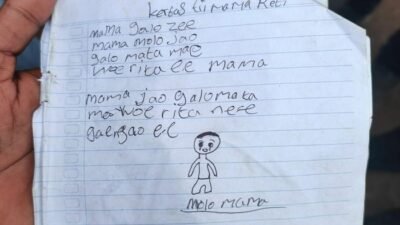 Kertas tii mama Reti
mama galo zee
mama molo Jao
galo mata mae
woe rita ee mama
mama jao galo mata
mae woe rita nese
gaengao ee
molo mama